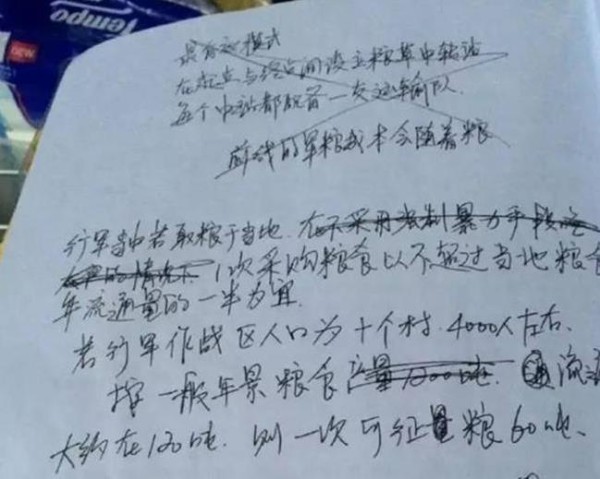 Tempo
new
最省的模式
在起点与终点间设立粮草中转站
每个中站都配备一支运输队.
前线的军粮成本会随着粮
行军当中若取粮于当地.在不采用强制暴力手段
的情况下 1次采购粮食以不超过当地粮食
年流通量的一半为宜
若行军作战区人口为十个村.4000人左右.
按一般年景粮食产量1200吨. 流通
大约在120吨. 则一次可征量粮60吨.